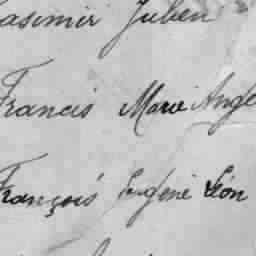 Casimir Julien
Francis Marie Ange
François Eugène Léon